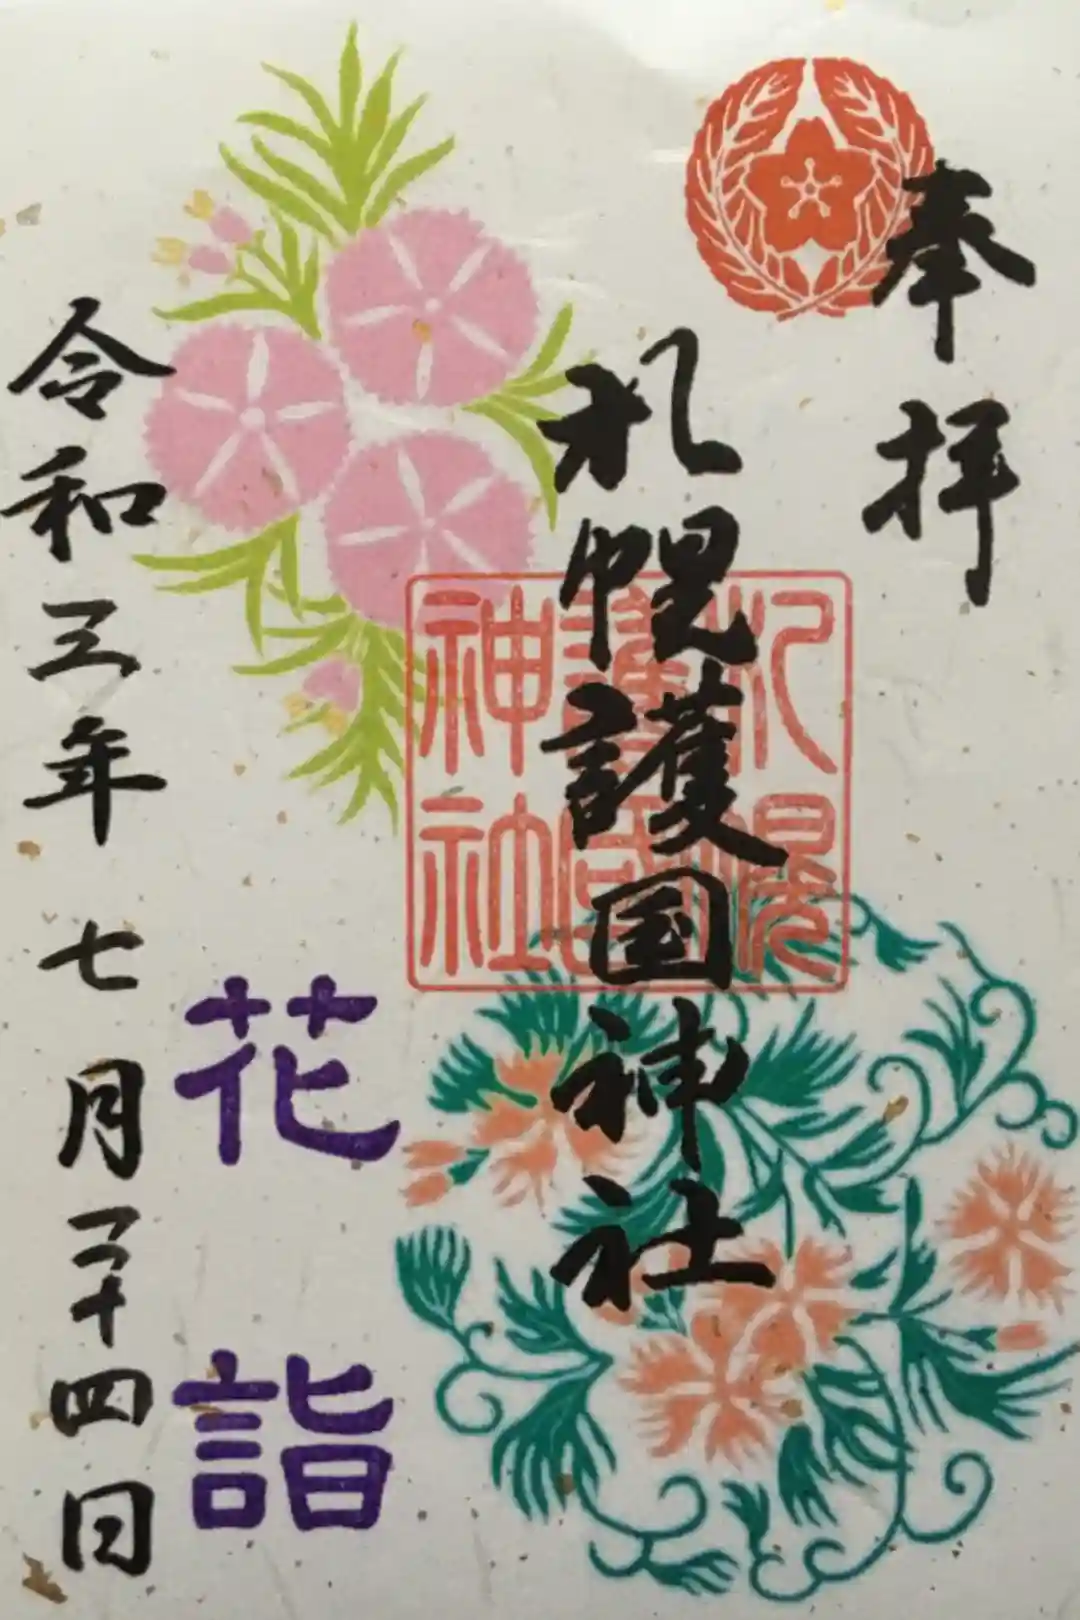 奉拝
札幌護国神社
札幌
護國
神社
花詣
令和三年七月二十四日